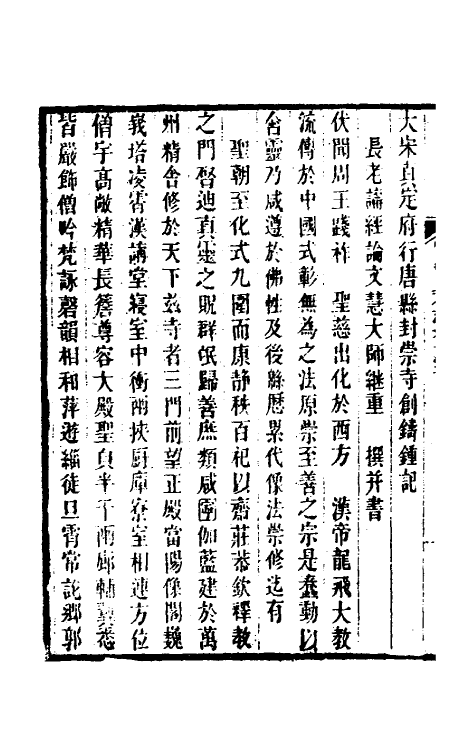 大宋真定府行唐縣封崇寺創鑄鍾記
長老講經論文慧大師繼重 撰并書
伏聞周王踐祚 聖慈出化於西方 漢帝龍飛大教
流傳於中國式彰無為之法原崇至善之宗是蠢動以
含靈乃咸遵於佛性及後緜歷累代像法崇修迄有
聖朝至化式九圍而康靜秩百祀以齋莊恭欽釋教
之門啓迪真靈之貺群氓歸善庶類咸圖伽藍建於萬
州精舍修於天下茲寺者三門前望正殿當陽像閣巍
峩塔凌霄漢講堂寢室中衝兩挾厨庫寮室相連方位
僧宇高敞精華長簷尊容大殿聖真半千兩廊輔翼悉
皆嚴飾僧吟梵詠磬韻相和萍遊緇徒旦霄常訖鄉郭